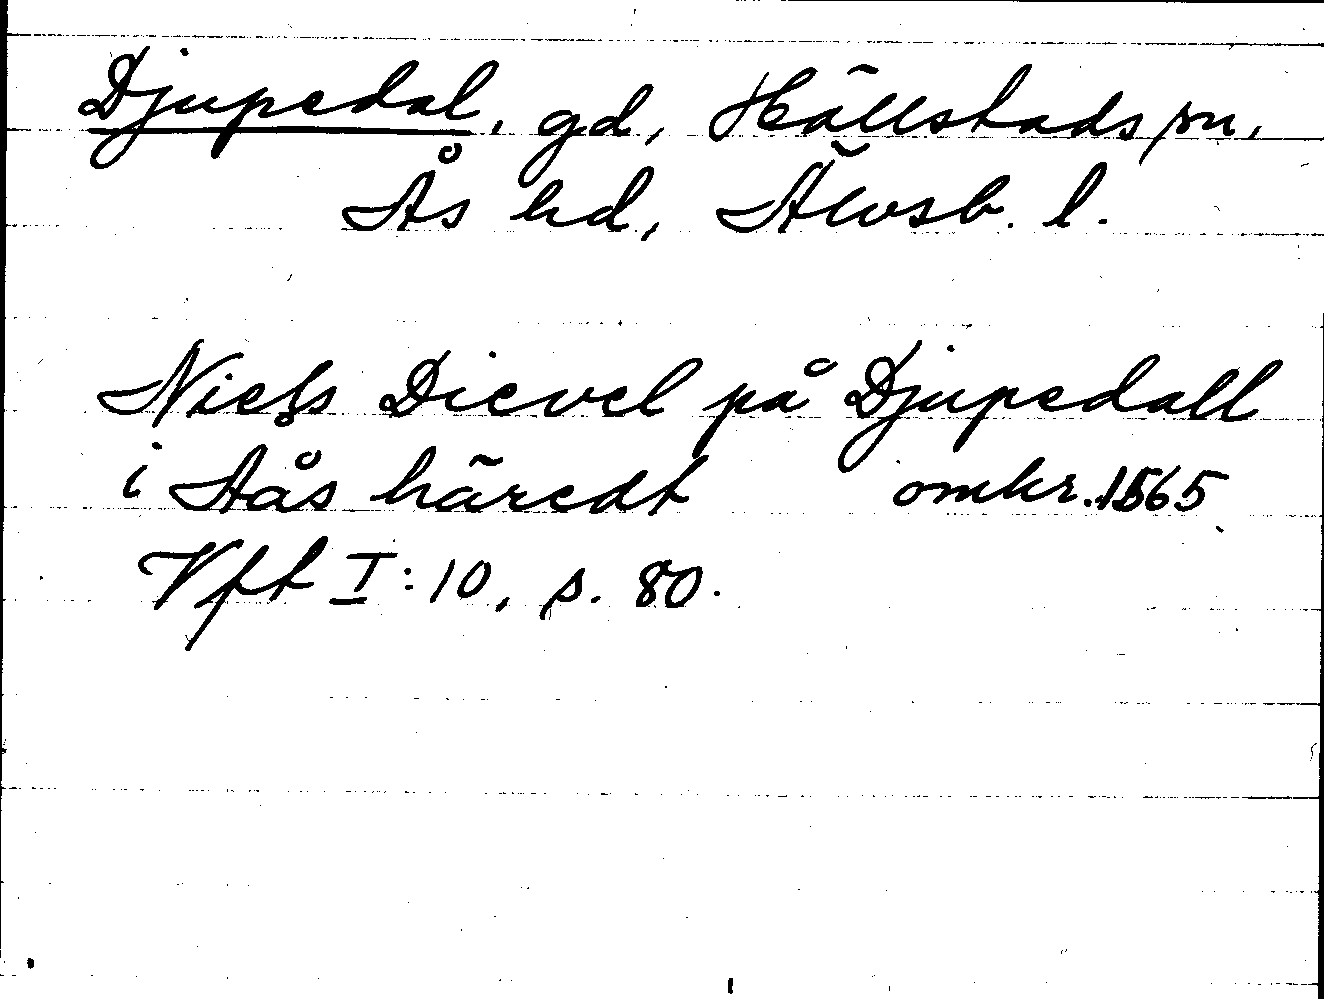 Djupedal, gd, Hällstads sn,
Ås hd, Älvsb. l.
Niels Dievel på Djupedall
i Aås häredt omkr. 1565
Vft I:10, s. 80.